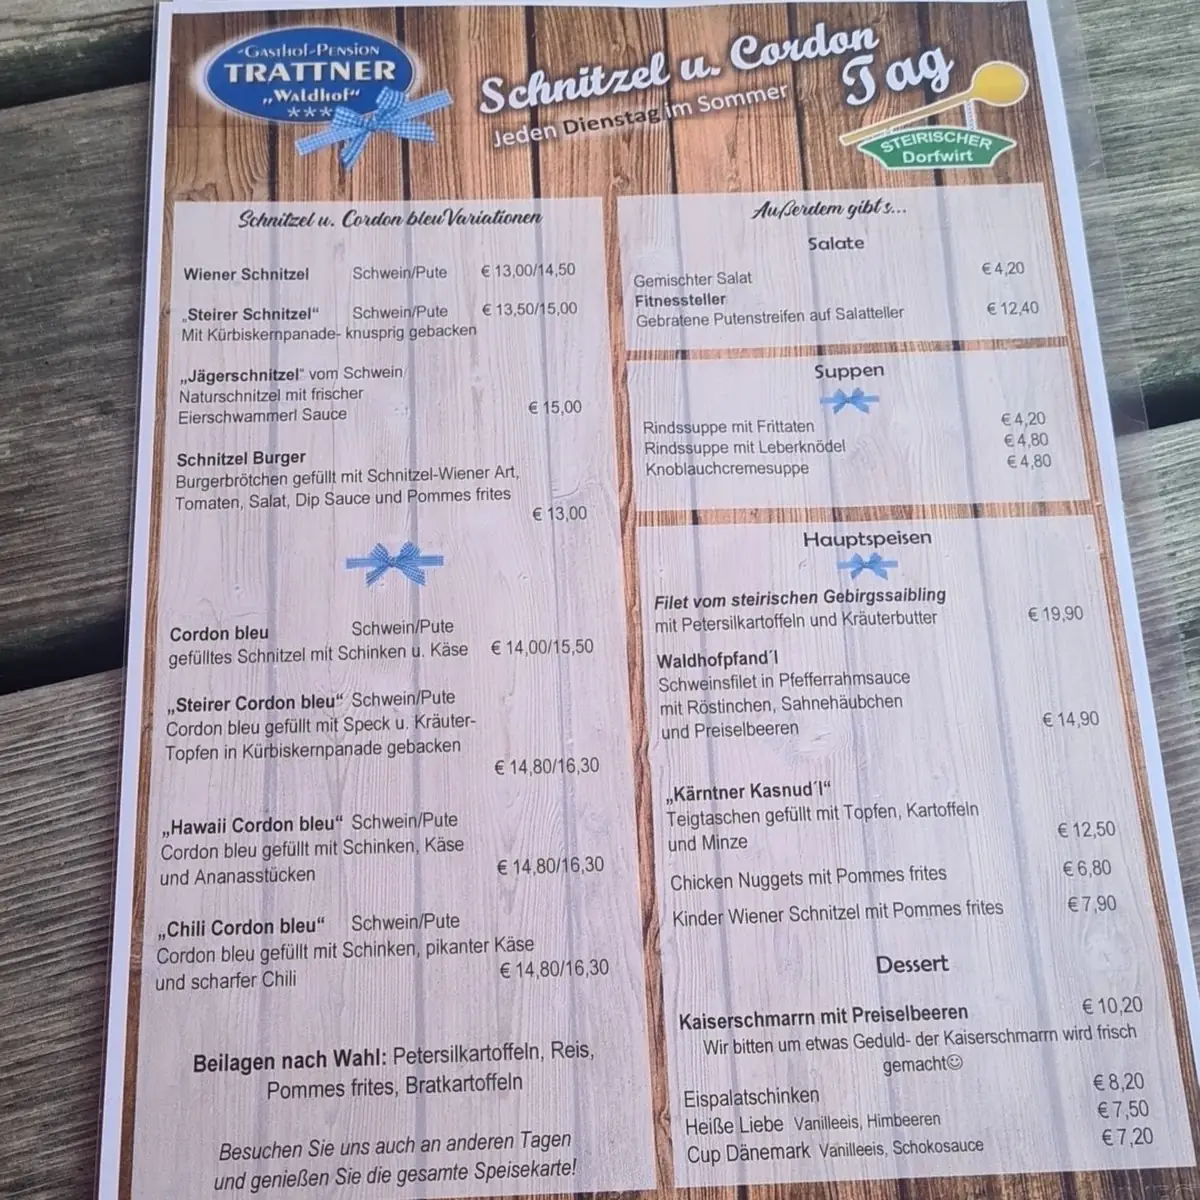 Gasthof-Pension
TRATTNER
„Waldhof“
***
Schnitzel u. Cordon
Tag
Jeden Dienstag im Sommer
STEIRISCHER
Dorfwirt
Schnitzel u. Cordon bleu Variationen
Wiener Schnitzel Schwein/Pute € 13,00/14,50
„Steirer Schnitzel“ Schwein/Pute € 13,50/15,00
Mit Kürbiskernpanade- knusprig gebacken
„Jägerschnitzel“ vom Schwein
Naturschnitzel mit frischer
Eierschwammerl Sauce € 15,00
Schnitzel Burger
Burgerbrötchen gefüllt mit Schnitzel-Wiener Art,
Tomaten, Salat, Dip Sauce und Pommes frites
€ 13,00
Cordon bleu Schwein/Pute
gefülltes Schnitzel mit Schinken u. Käse € 14,00/15,50
„Steirer Cordon bleu“ Schwein/Pute
Cordon bleu gefüllt mit Speck u. Kräuter-
Topfen in Kürbiskernpanade gebacken
€ 14,80/16,30
„Hawaii Cordon bleu“ Schwein/Pute
Cordon bleu gefüllt mit Schinken, Käse
und Ananasstücken € 14,80/16,30
„Chili Cordon bleu“ Schwein/Pute
Cordon bleu gefüllt mit Schinken, pikanter Käse
und scharfer Chili € 14,80/16,30
Beilagen nach Wahl: Petersilkartoffeln, Reis,
Pommes frites, Bratkartoffeln
Besuchen Sie uns auch an anderen Tagen
und genießen Sie die gesamte Speisekarte!
Außerdem gibt s...
Salate
Gemischter Salat € 4,20
Fitnessteller
Gebratene Putenstreifen auf Salatteller € 12,40
Suppen
Rindssuppe mit Frittaten € 4,20
Rindssuppe mit Leberknödel € 4,80
Knoblauchcremesuppe € 4,80
Hauptspeisen
Filet vom steirischen Gebirgssaibling
mit Petersilkartoffeln und Kräuterbutter € 19,90
Waldhofpfand´l
Schweinsfilet in Pfefferrahmsauce
mit Röstinchen, Sahnehäubchen
und Preiselbeeren € 14,90
„Kärntner Kasnud´l“
Teigtaschen gefüllt mit Topfen, Kartoffeln
und Minze € 12,50
Chicken Nuggets mit Pommes frites € 6,80
Kinder Wiener Schnitzel mit Pommes frites € 7,90
Dessert
Kaiserschmarrn mit Preiselbeeren € 10,20
Wir bitten um etwas Geduld- der Kaiserschmarrn wird frisch
gemacht☺
Eispalatschinken € 8,20
Heiße Liebe Vanilleeis, Himbeeren € 7,50
Cup Dänemark Vanilleeis, Schokosauce € 7,20